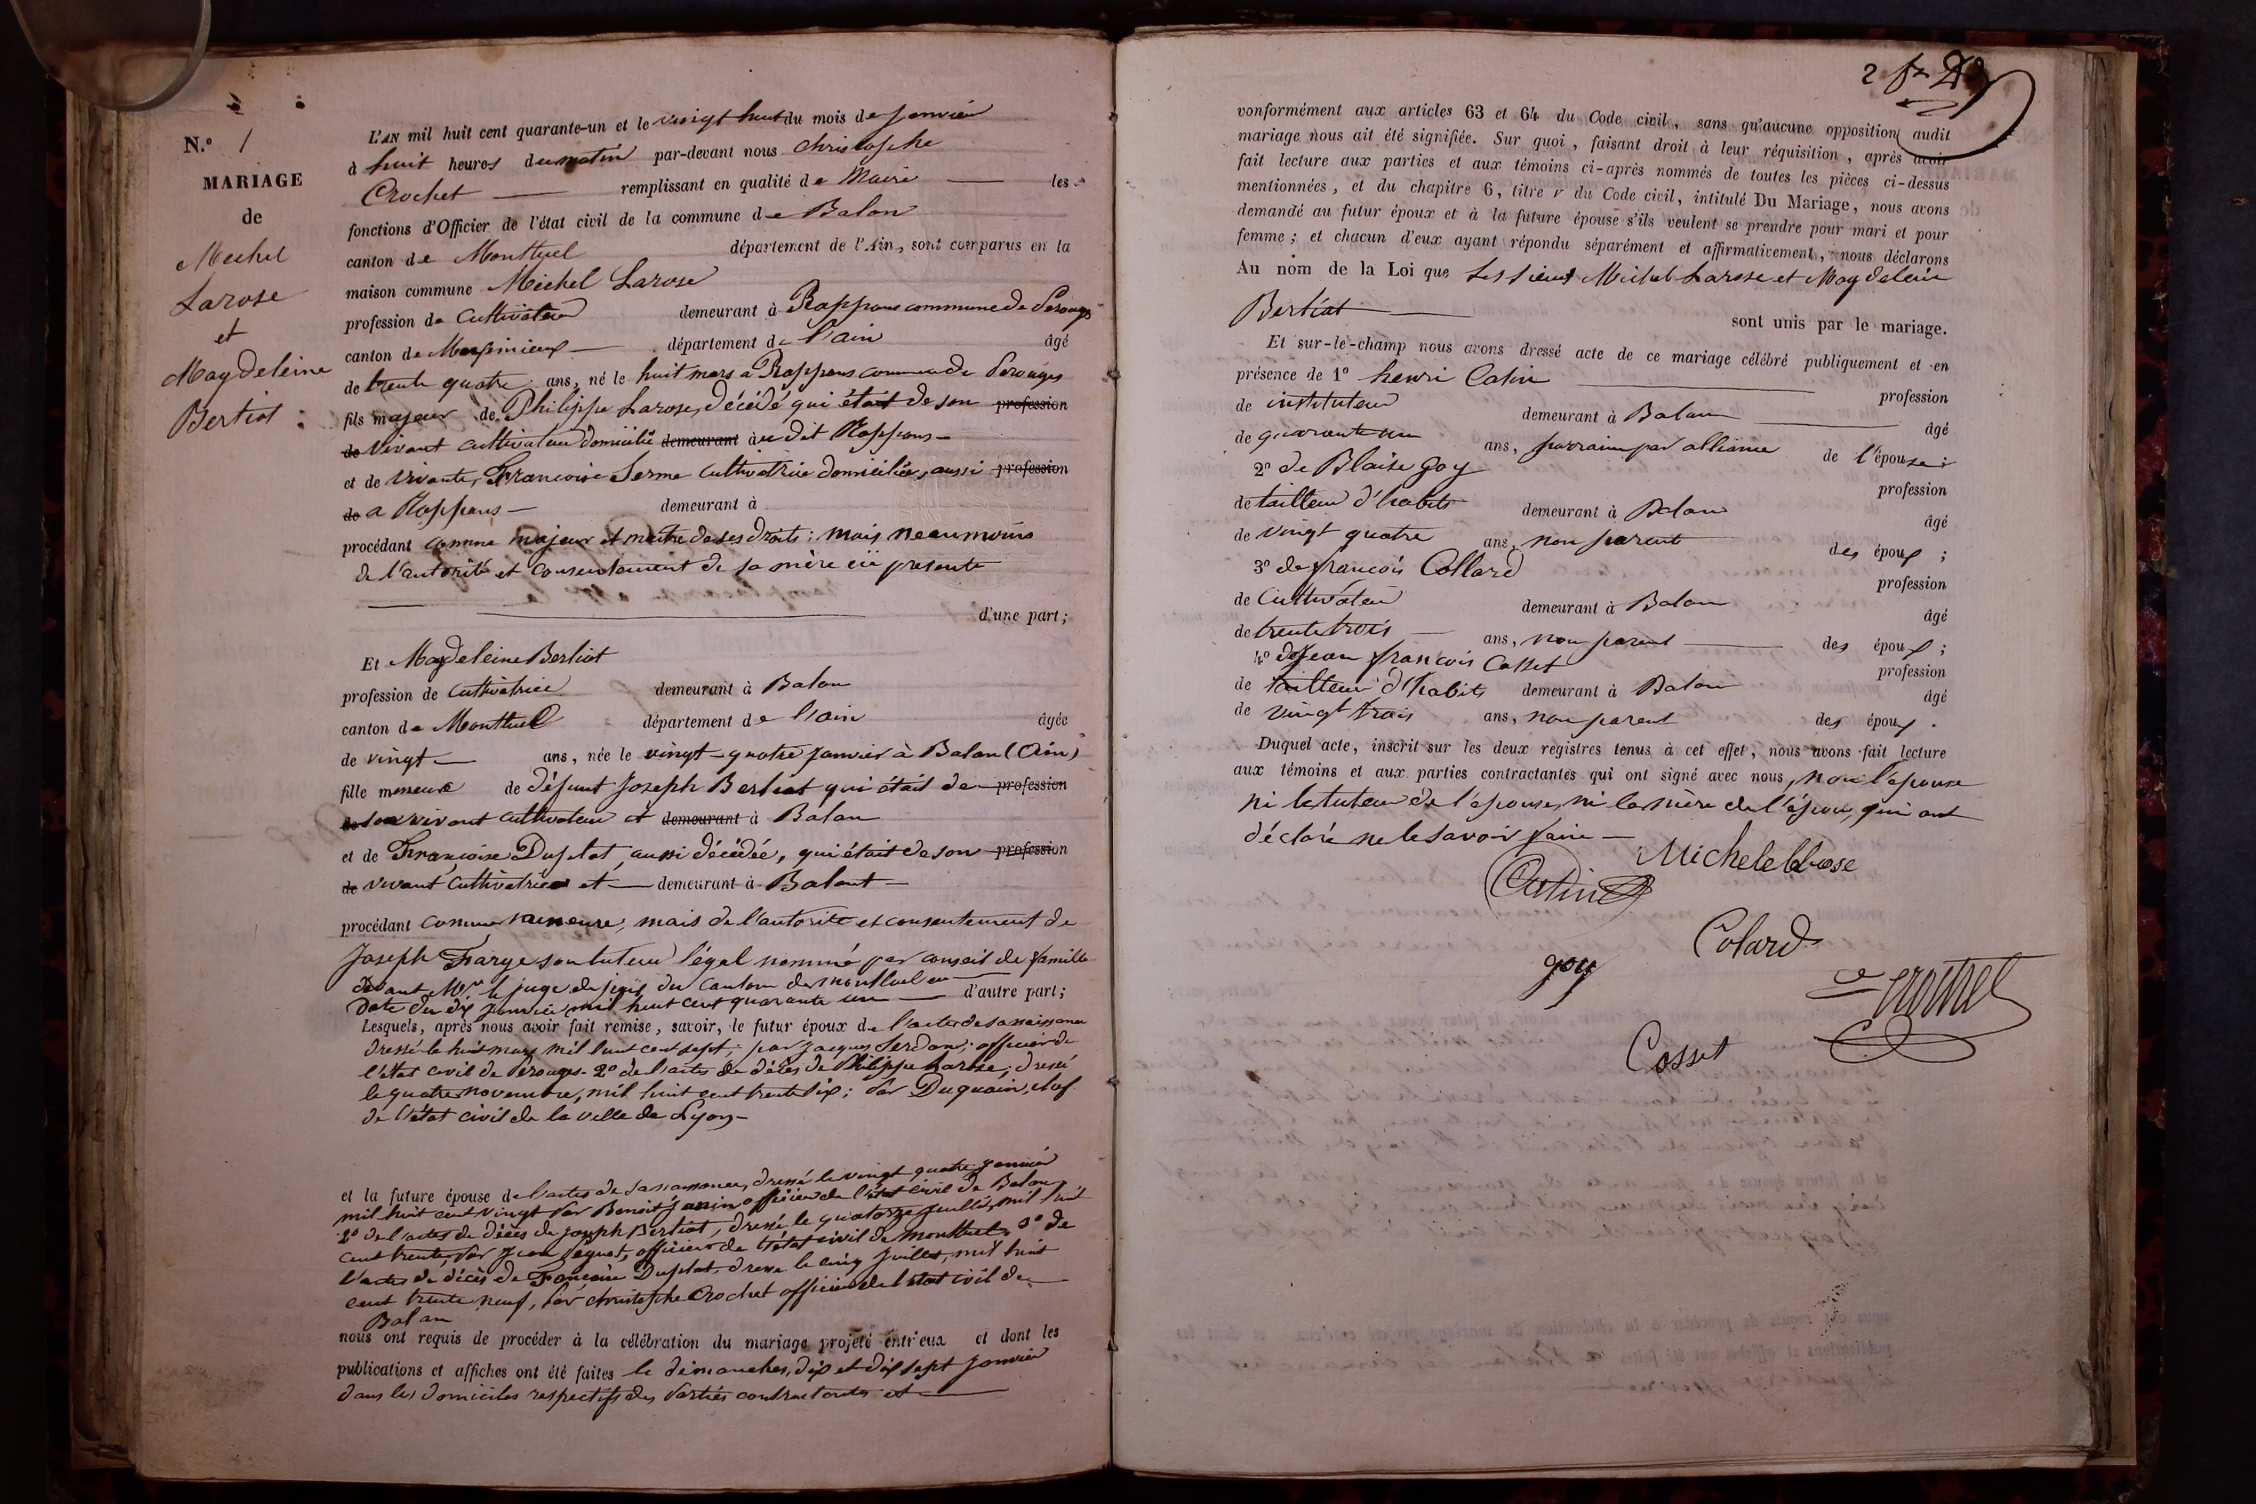 N.o 1
MARIAGE
de
Michel
Larose
et
Magdeleine
Bertiot :
L'AN mil huit cent quarante-un et le vingt huit du mois de janvier
à huit heures du matin par-devant nous Christophe
Crochet — remplissant en qualité de Maire — les
fonctions d'Officier de l'état civil de la commune de Balan
canton de Montluel département de l'Ain, sont comparus en la
maison commune Michel Larose
profession de Cultivateur demeurant à Rappans commune de Perouges
canton de Meximieux — département de l'ain âgé
de trente quatre ans, né le huit mars a Rappans commune de Perouges
fils majeur de Philippe Larose, décédé qui était de son profession
de vivant cultivateur domicilié demeurant au dit Rappans —
et de vivante, Francoise Serme cultivatrice domiciliée, aussi profession
de a Rappans — demeurant à
procédant comme majeur et maître de ses droits : mais neanmoins
de l'autorité et consentement de sa mère ici presente
d'une part ;
Et Magdeleine Bertiot
profession de cultivatrice demeurant à Balan
canton de Montluel département de l'ain âgée
de vingt — ans, née le vingt-quatre janvier à Balan (Ain)
fille mineure de défunt Joseph Bertiot qui était de profession
de son vivant cultivateur et demeurant à Balan
et de Françoise Duplat, aussi décédée, qui était de son profession
de vivant cultivatrice et — demeurant à Balant —
procédant comme mineure, mais de l'autorité et consentement de
Joseph Farge son tuteur légal nommé par conseil de famille
devant Mr le juge de paix du Canton de montluel en
Date du dix janvier mil huit cent quarante un — d'autre part ;
Lesquels, après nous avoir fait remise, savoir, le futur époux de l'acte de sa naissance
dressé le huit mars mil huit cent sept, par Jacques Serdan, officier de
l'état civil de Perouges. 2o de l'acte de décès de Philippe Larose, dressé
le quatre novembre, mil huit cent trente six ; Par Duquain, chef
de l'état civil de la ville de Lyon —
et la future épouse de l'acte de sa naissance, dressé le vingt quatre janvier
mil huit cent vingt Par Benoit Janin officier de l'état civil de Balan,
2o de l'acte de décès de Joseph Bertiot, dressé le quatorze juillet, mil huit
cent trente, Par Jean Péquet, officier de l'état civil de Montluel, 3o de
l'acte de décès de Francoise Duplat, dressé le cinq juillet, mil huit
cent trente neuf, Par Christophe Crochet officier de l'état civil de
Balan
nous ont requis de procéder à la célébration du mariage projeté entr'eux et dont les
publications et affiches ont été faites le dimanches, dix et dix sept janvier
dans les domiciles respectifs des Parties contractantes et —
2
vonformément aux articles 63 et 64 du Code civil, sans qu'aucune opposition audit
mariage nous ait été signifiée. Sur quoi, faisant droit à leur réquisition, après avoir
fait lecture aux parties et aux témoins ci-après nommés de toutes les pièces ci-dessus
mentionnées, et du chapitre 6, titre v du Code civil, intitulé Du Mariage, nous avons
demandé au futur époux et à la future épouse s'ils veulent se prendre pour mari et pour
femme ; et chacun d'eux ayant répondu séparément et affirmativement, nous déclarons
Au nom de la Loi que Les sieurs Michel Larose et Magdeleine
Bertiot — sont unis par le mariage.
Et sur-le-champ nous avons dressé acte de ce mariage célébré publiquement et en
présence de 1o henri Catin — profession
de instituteur demeurant à Balan — âgé
de quarante un ans, parrain par alliance de l'épouse ;
2o de Blaise goy profession
de tailleur d'habits demeurant à Balan âgé
de vingt quatre ans, non parent des époux ;
3o de françois Collard profession
de Cultivateur demeurant à Balan âgé
de trente trois — ans, non parent — des époux ;
4o de Jean françois Cosset profession
de tailleur d'habits demeurant à Balan âgé
de vingt trois ans, non parent des époux .
Duquel acte, inscrit sur les deux registres tenus à cet effet, nous avons fait lecture
aux témoins et aux parties contractantes qui ont signé avec nous, non l'épouse
ni le tuteur de l'épouse, ni la mère de l'époux, qui ont
déclaré ne le savoir faire —
Catin
Colard
goy
Crochet
Cosset